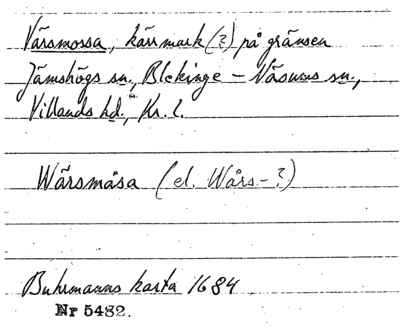 Värsmossa, kärrmark (?) på gränsen
Jämshögs sn, Blekinge – Näsums sn,
Villands hd, Kr. l.
Wärsmåsa (el. Wårs-?)
Buhrmanns karta 1684
Nr 5482.